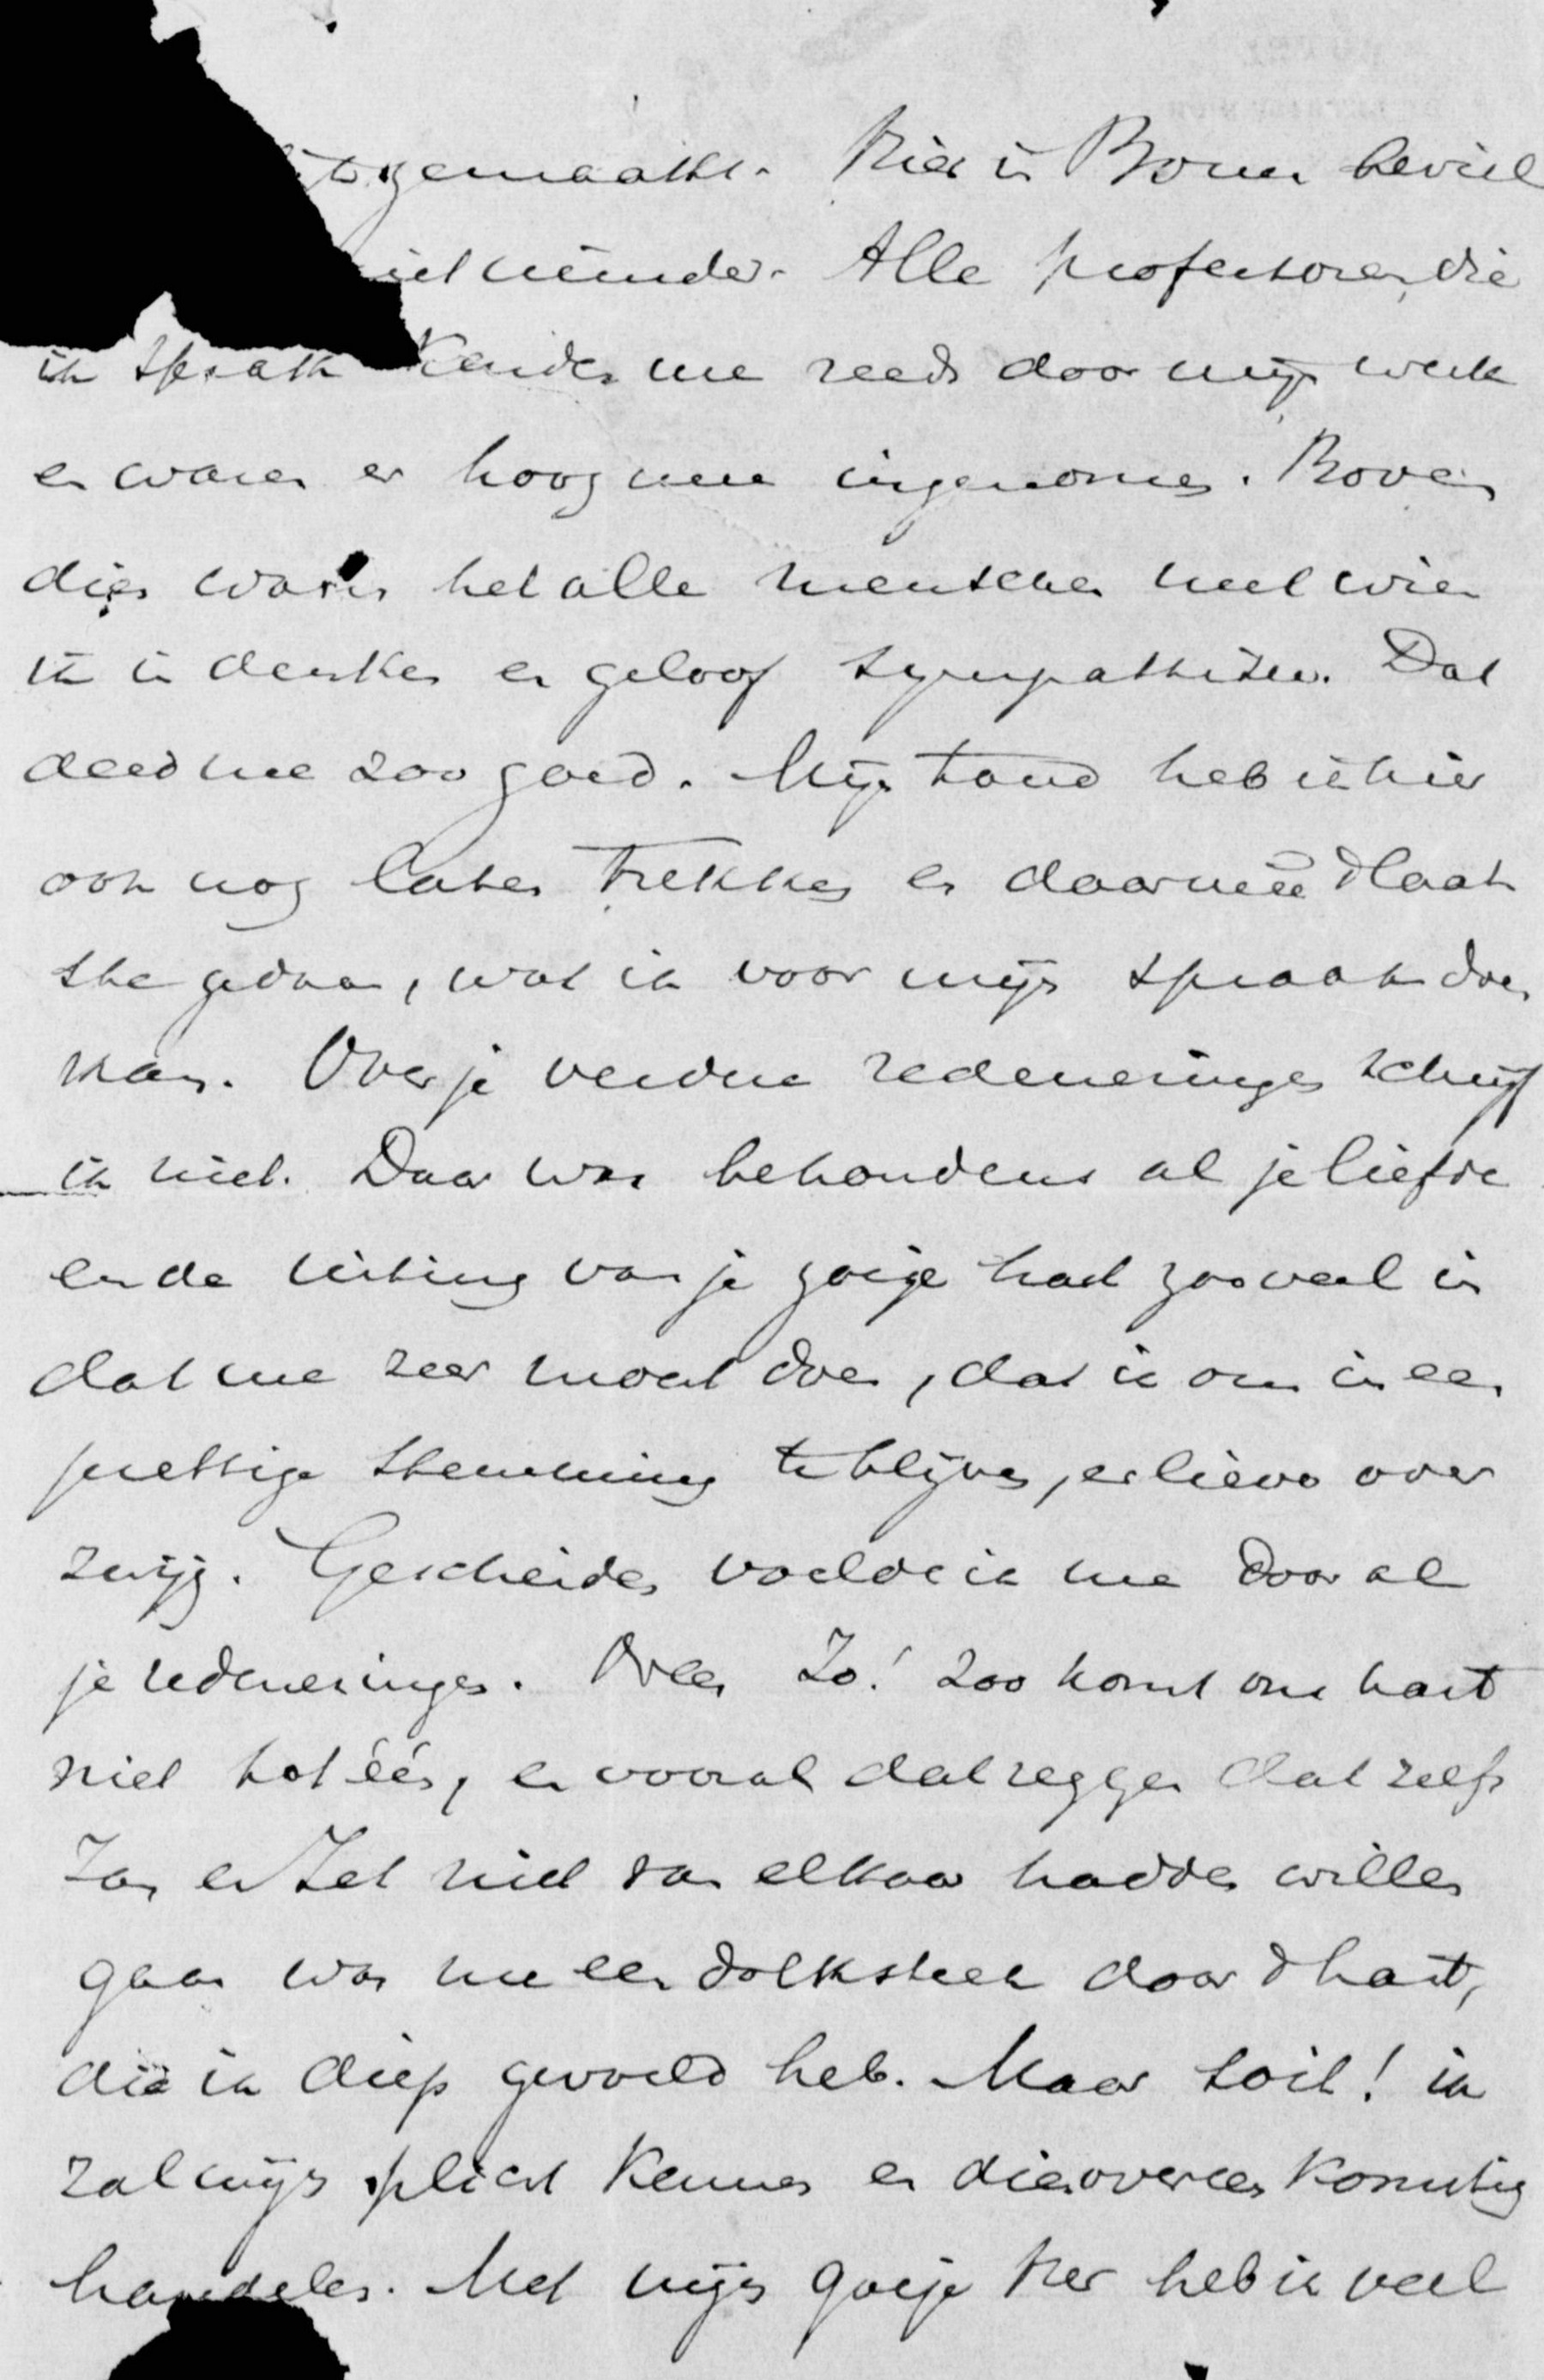 gemaakt. Hier in Bonn beviel
niet minder. Alle professoren, die
ik sprak kenden me reeds door mijn werk
en waren er hoog mee ingenomen. Boven
dien waren het alle menschen met wien
ik in denken en geloof sympathiseer. Dat
deed me zoo goed. Mijn tand heb ik hier
ook nog laten trekken en daarmeê 't laat
ste gedaan, wat ik voor mijn spraak doen
kan. Over je verdere redeneeringen schrijf
ik niet. Daar was behoudens al je liefde
en de uiting van je goeje hart zooveel in
dat me zeer moest doen, dat ik om in een
prettige stemming te blijven, er liever over
zwijg. Gescheiden voelde ik me door al
je redeneeringen. Neen Jo! zoo komt ons hart
niet tot één, en vooral dat zeggen dat zelfs
Jan en Jet niet van elkaar hadden willen
gaan was me een dolksteek door 't hart,
die ik diep gevoeld heb. Maar soit! ik
zal mijn plicht kennen en dienovereenkomstig
handelen. Met mijn goeje Her heb ik veel